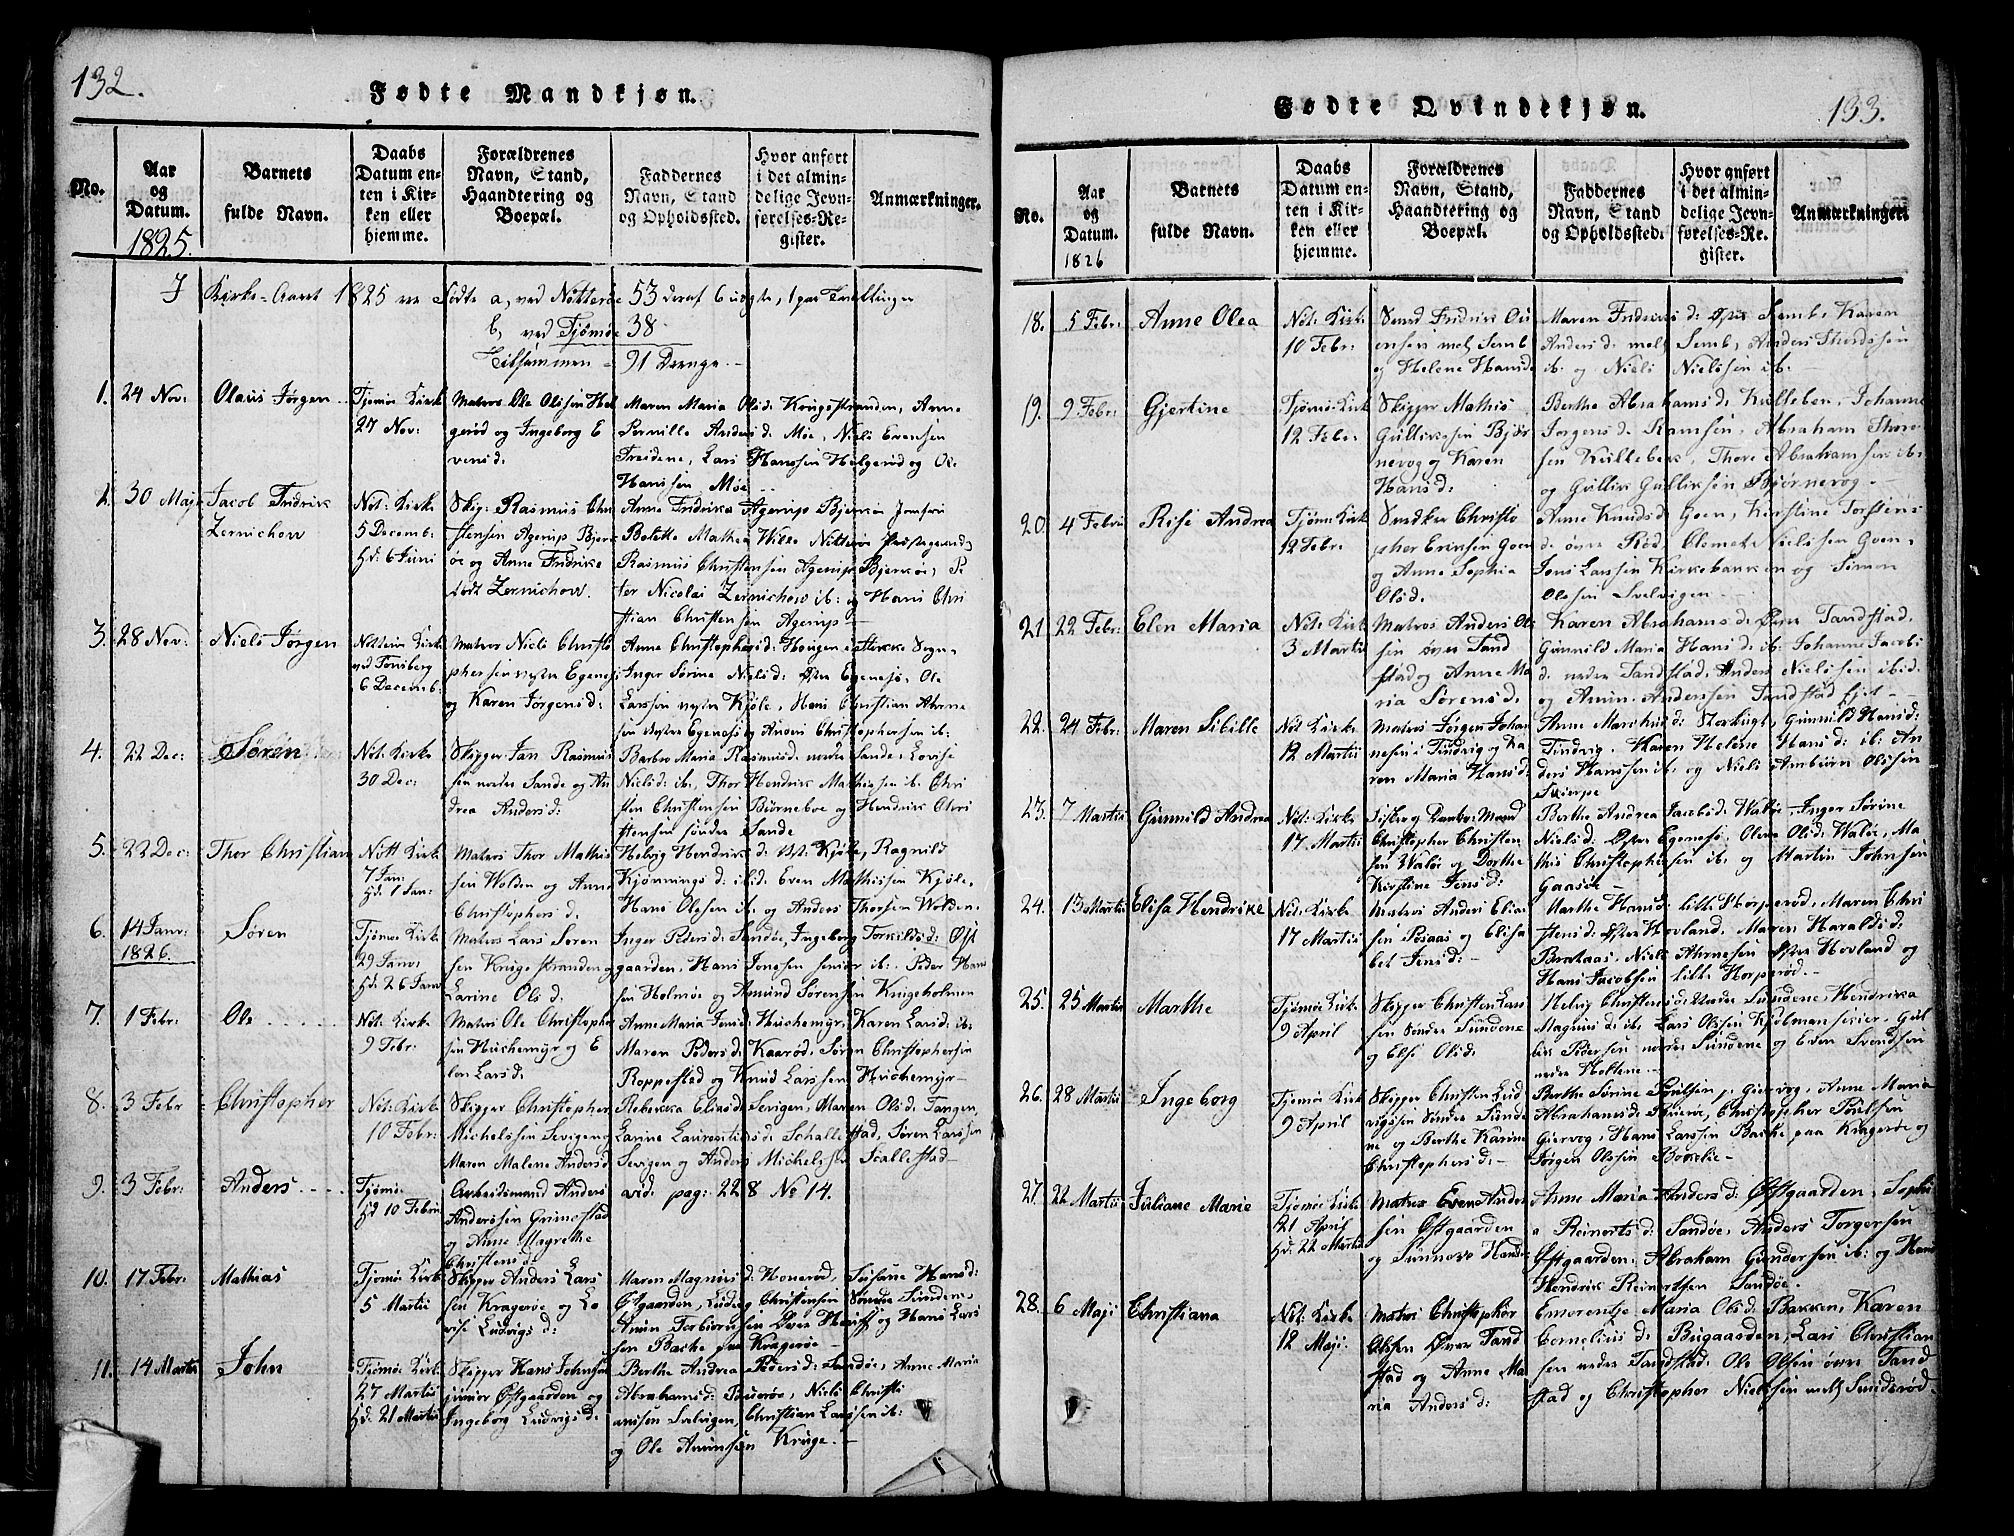 132.
Fødte Mandkjøn.
No.
Aar
og
Datum.
1825.
Barnets
fulde Navn.
Daabs
Datum en-
ten i Kir-
ken eller
hjemme.
Forældrenes
Navn, Stand,
Haandtering og
Boepæl.
Faddernes
Navn, Stand
og Opholdssted.
Hvor anført
i det almin-
delige Jevn-
førelses-Re-
gister.
Anmærkninger.
I Kirke-Aaret 1825 ere Fødte a, ved Nötteröe 53 deraf 6 uægte, 1 par Tvillinger
b, ved Tjömöe 38
Tilsammen = 91 Drenge
1. 24 Nov:
Olaus Jørgen
Tjömöe Kirk
27 Nov:
Matros Ole Olssen Hel
gerød og Ingeborg E
vensd.
Maren Maria Olsd: Krugestranden, Anne
Pernille Anders d: Moe, Niels Evensen
Lars Hanssen Helgerød og Ole
Hanssen Moe
2. 30 Maji
Jacob Fredrik
Zernichow
Not: Kirk
5 Decemb:
Hd: 6 Juni
Skip: Rasmus Chri
stensen Agerup Bjer
öe og Anne Fredrike
født Zernichow.
Anne Fredrika Agerup Bjerköe Jomfru
Bolette Mathea Wille Nötteröe
Rasmus Christensen Agerup Bjerköe, Pe
ter Nicolai Zernichow ib: og Hans Chri
stian Christensen Agerup
3. 28 Nov:
Niels Jørgen
Nötteröe Kirk
ved Tønsberg
6 Decemb:
Matros Niels Christo
phersen vestre Egenes
og Karen Jørgens d:
Anne Christophersd: Hougen
Inger Sørine Nielsd: Østre Egenesö, Ole
Larssen vestre Kjöle, Hans Christian Ahrne
sen vestre Egenesö og Anders Christophersen ib:
4. 22 Dec:
Sørén
Not: Kirk
30 Dec:
Skipper Jan Rasmus
sen nedre Sande og An
drea Andersd:
Barbro Maria Rasmusd: nedre Sande, Lovise
Nielsd: ib, Thor Hendrik Mathiesen ib: Chri
sten Christensen Bjørneboe og Hendrik Chri
stensen søndre Sande
5. 22 Dec:
Thor Christian
Nött Kirk
7 Jan:
Hd: 1 Jan:
Matros Thor Mathis
sen Wolden og Anne
Christophers d.
Helvig Hendriks d: Vst: Kjöle, Ragnild
Kjønnings d: ibid: Even Mathissen Kjöle,
Hans Olssen ib. og Anders Thorsen Wolden.
6. 14 Janv:
1826.
Søren
Tjömöe Kirk
29 Janv:
Hd: 26 Janv
Matros Lars Søren
sen Krugestranden og
Larine Ols d.
Inger Peders d: Sandöe, Ingeborg Torkildsd: Øst
gaarden, Hans Jonssen senior ib. Peder Hans
sen Holmöe og Amund Sørensen Krugeholmen
7. 1 Febr:
Ole
Not: Kirk
9 Febr:
Matros Ole Christopher
sen Huchemyr og E
len Larsd.
Anne Maria Jensd: Huchemyr, Karen Larsd: ib:
Maren Peders d: Kaarød, Søren Christophersen
Roppestad og Knud Larssen Huchemyr
8. 3 Febr
Christopher
Not: Kirk
10 Febr:
Skipper Christopher
Michelssen Sevigen og
Maren Malene Andersd
Rebekka Eliasd: Sevigen, Maren Olsd: Tangen,
Larine Laurentiisd: Schallestad, Søren Larssen
Sevigen og Anders Michelssen Scallestad
9. 3 Febr:
Anders
Tjömöe
Hd 10 Febr:
Arbeidsmand Anders
Anderssen Grimestad
og Anne Magrethe
Christensd:
vid: pag: 228 No 14.
10. 17 Febr:
Mathias
Tjömöe Kirk
5 Martii
Skipper Anders Lars
sen Krageröe og Lo
vise Ludvigs d:
Maren Magnus d: Honerød, Susane Hansd:
Østgaarden, Ludvig Christensen Søndre Sundene,
Amun Torbiörnsen Øvre og Hans Lars
sen Bache paa Krageröe
11. 14 Martii
John
Tjömöe Kirk
27 Martii
Hd: 21 Martii
Skipper Hans Johnsen
junior Østgaarden og
Ingeborg Ludvigs d:
Berthe Andrea Peders d: Sandöe, Anne Maria
Abrahamsd: Niels Christi
anssen Svelvigen, Christian Larssen ib:
og Ole Amunsen Kruge.
133.
Fødte Qvindekjøn.
No.
Aar
og
Datum.
1826
Barnets
fulde Navn.
Daabs
Datum en-
ten i Kir-
ken eller
hjemme.
Forældrenes
Navn, Stand,
Haandtering og
Boepæl.
Faddernes
Navn, Stand
og Opholdssted.
Hvor anført
i det almin-
delige Jevn-
førelses-Re-
gister.
Anmærkninger.
18. 5 Febr:
Anne Olea
Not: Kirk
10 Febr:
Smed Fredrik Ou
ensen mell Semb
og Helene Hansd
Maren Fredriks d: Østre Semb, Karen
Anders d: mell Semb, Anders
ib: og Niels Nielssen ib:
19. 9 Febr:
Gjertine
Tjömöe Kirk
12 Febr:
Skipper Mathis
Gullikssen Bjør
nevog og Karen
Hans d:
Berthe Abrahams d: Kulleben, Johanne
Jørgens d: Ramsen, Abraham Thore
sen Kullebek, Thore Abrahamsen ib:
og Gullik Gullikssen Bjørnevog.
20. 4 Febr:
Risi Andrea
Tjöme Kirk
12 Febr:
Snedker Christo
pher Ericsen Goen
og Anne Sophia
Olsd.
Anne Knuds d: Goen, Kirstine Torstens
d: øvre Röd, Clemet Nielssen Goen,
Jens Larssen Kirkebakken og Simon
Olssen Svelvigen
21. 22 Febr:
Elen Maria
Not: Kirk
3 Martii
Matros Anders Ols
sen øver Tand
stad og Anne Ma
ria Sørens d.
Karen Abrahamsd: Øvre Tandstad,
Gunnild Maria Hans d: ib: Johanne Jacobs
d: nedre Tandstad, Anders Nielssen ibid:
og Amun Anderssen Tandstad Eje
22. 24 Febr:
Maren Sibille
Not: Kirk
12 Martii
Matros Jørgen Johan
nesen i Tindvig og Ka
ren Maria Hans d:
Anne Mathis d: Storbugt, Gunnild Hans d:
Tindvig, Karen Helene Hans d: ib: An
ders Hanssen ib, og Niels Ambiörn Olssen
Skierpe
23. 7 Martii
Gunnild Andrea
Not: Kirk
17 Martii
Christopher Christen
sen Walöe og Dorthe
Kirstine Jens d:
Berthe Andrea Jacobs d: Walöe, Inger Sørine
Niels d: Østre Egenesö, Olea Ols d: Walöe, Ma
this Christophersen ib: og Martin Johnsen
Gaasöe
24. 13 Martii
Elisa Hendrike
Not: Kirk
17 Martii
Matros Anders Elias
sen Rosaas og Elisa
bet Jensd:
Marthe Hansd: lille Horperød, Maren Chri
stensd: Østre Hovland, Maren Haraldsd:
Brataas, Niels Ahrnesen Østre Hovland og
Hans Jacobsen lille Horperød.
25. 25 Martii
Marthe
Tjömöe Kirk
9 April
Skipper Christen Lars
sen Søndre Sundene
og Elsi Olsd.
Helvig Christensd: Nedre Sundene, Hendrika
Magnus d: ib, Lars Olssen Kjölmansseier, Gul
lik Pedersen nordre Sundene og Even Svendsen
nedre Holtene
26. 28 Martii
Ingeborg
Tjömöe Kirk
9 April
Skipper Christen Lud
vigssen Søndre Sunde
ne og Berthe Karine
Christophersd:
Berthe Sørine Poulsen, Giervog, Anne Maria
Abrahamsd: Christopher Poulsen
Giervog, Hans Larssen Bache paa Krageröe og
Jørgen Olssen Borkelie
27. 22 Martii
Juliane Marie
Tjömöe Kirk
21 April
Hd: 22 Martii
Matros Even Ander
sen Østgaarden
og Sunneve Hansd
Anne Maria Anders d: Østgaarden, Sophi
a Reinerts d: Sandöe, Anders Torgersen
Østgaarden, Abraham Gundersen ib: og Hans
Hendrik Reinertsen Sandöe
28. 6 Maji
Christiana
Not: Kirk
12 Maji:
Matros Christophor
Olssen Øver Tand
stad og Anne Ma
ria Anders d:
Emerentje Maria Olsd: Bakken, Karen
Cornelius d: Bugaarden, Lars Christian
sen nedre Tandstad, Ole Olssen øvre Tand
stad og Christopher Nielssen mell Sunderød